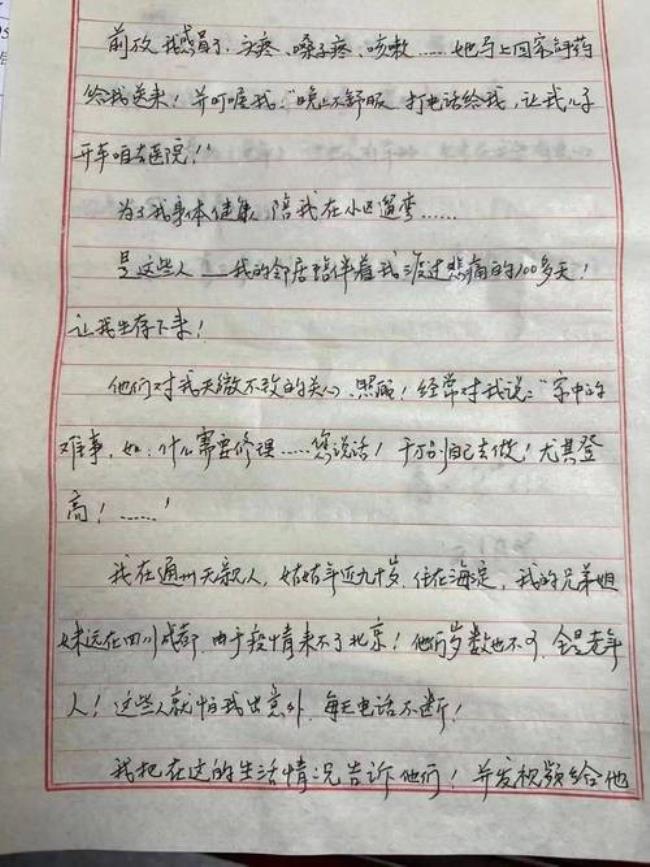 前段我感冒了.头疼、嗓子疼、咳嗽……她马上回家拿药
给我送来！并叮咛我："晚上不舒服 打电话给我，让我儿子
开车咱去医院！"
为了我身体健康 陪我在小区遛弯……
是这些人——我的邻居陪伴着我渡过悲痛的100多天！
让我生存下来！
他们对我无微不致的关心、照顾！经常对我说："家中的
难事，如：什么需要修理……您说话！千万别自己去做！尤其登
高！……"
我在通州无亲人，姑姑年近九十岁.住在海淀，我的兄弟姐
妹远在四川成都.由于疫情来不了北京！他们岁数也不小.全是老年
人！这些人就怕我出意外.每天电话不断！
我把在这的生活情况告诉他们！并发视频给他